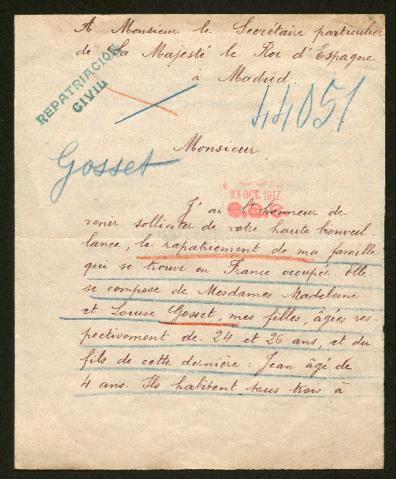 A Monsieur le Secrétaire particulier
de Sa Majesté le Roi d'Espagne
à Madrid.
REPATRIACIÓN
CIVIL
44051
Monsieur
Gosset
23 OCT. 1917
J'ai l'honneur de
venir solliciter de votre haute bienveil-
lance, le rapatriement de ma famille
qui se trouve en France occupée. Elle
se compose de Mesdames Madeleine
et Louise Gosset, mes filles, âgées res-
pectivement de 24 et 26 ans, et du
fils de cette dernière : Jean âgé de
4 ans. Ils habitent tous trois à